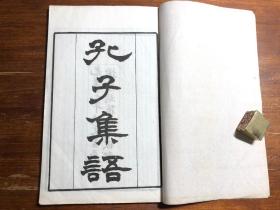 孔子集語